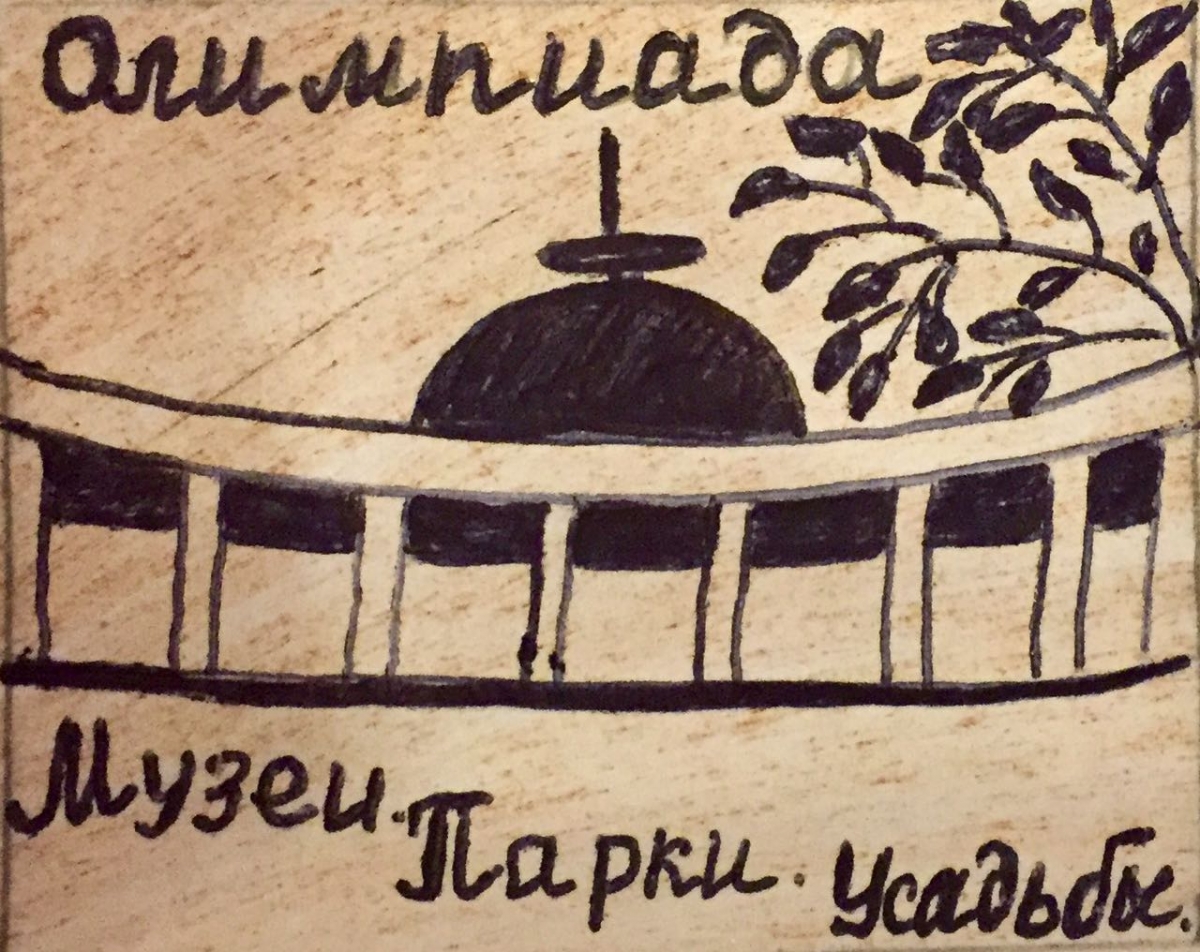 Олимпиада
Музеи.
Парки.
Усадьбы.